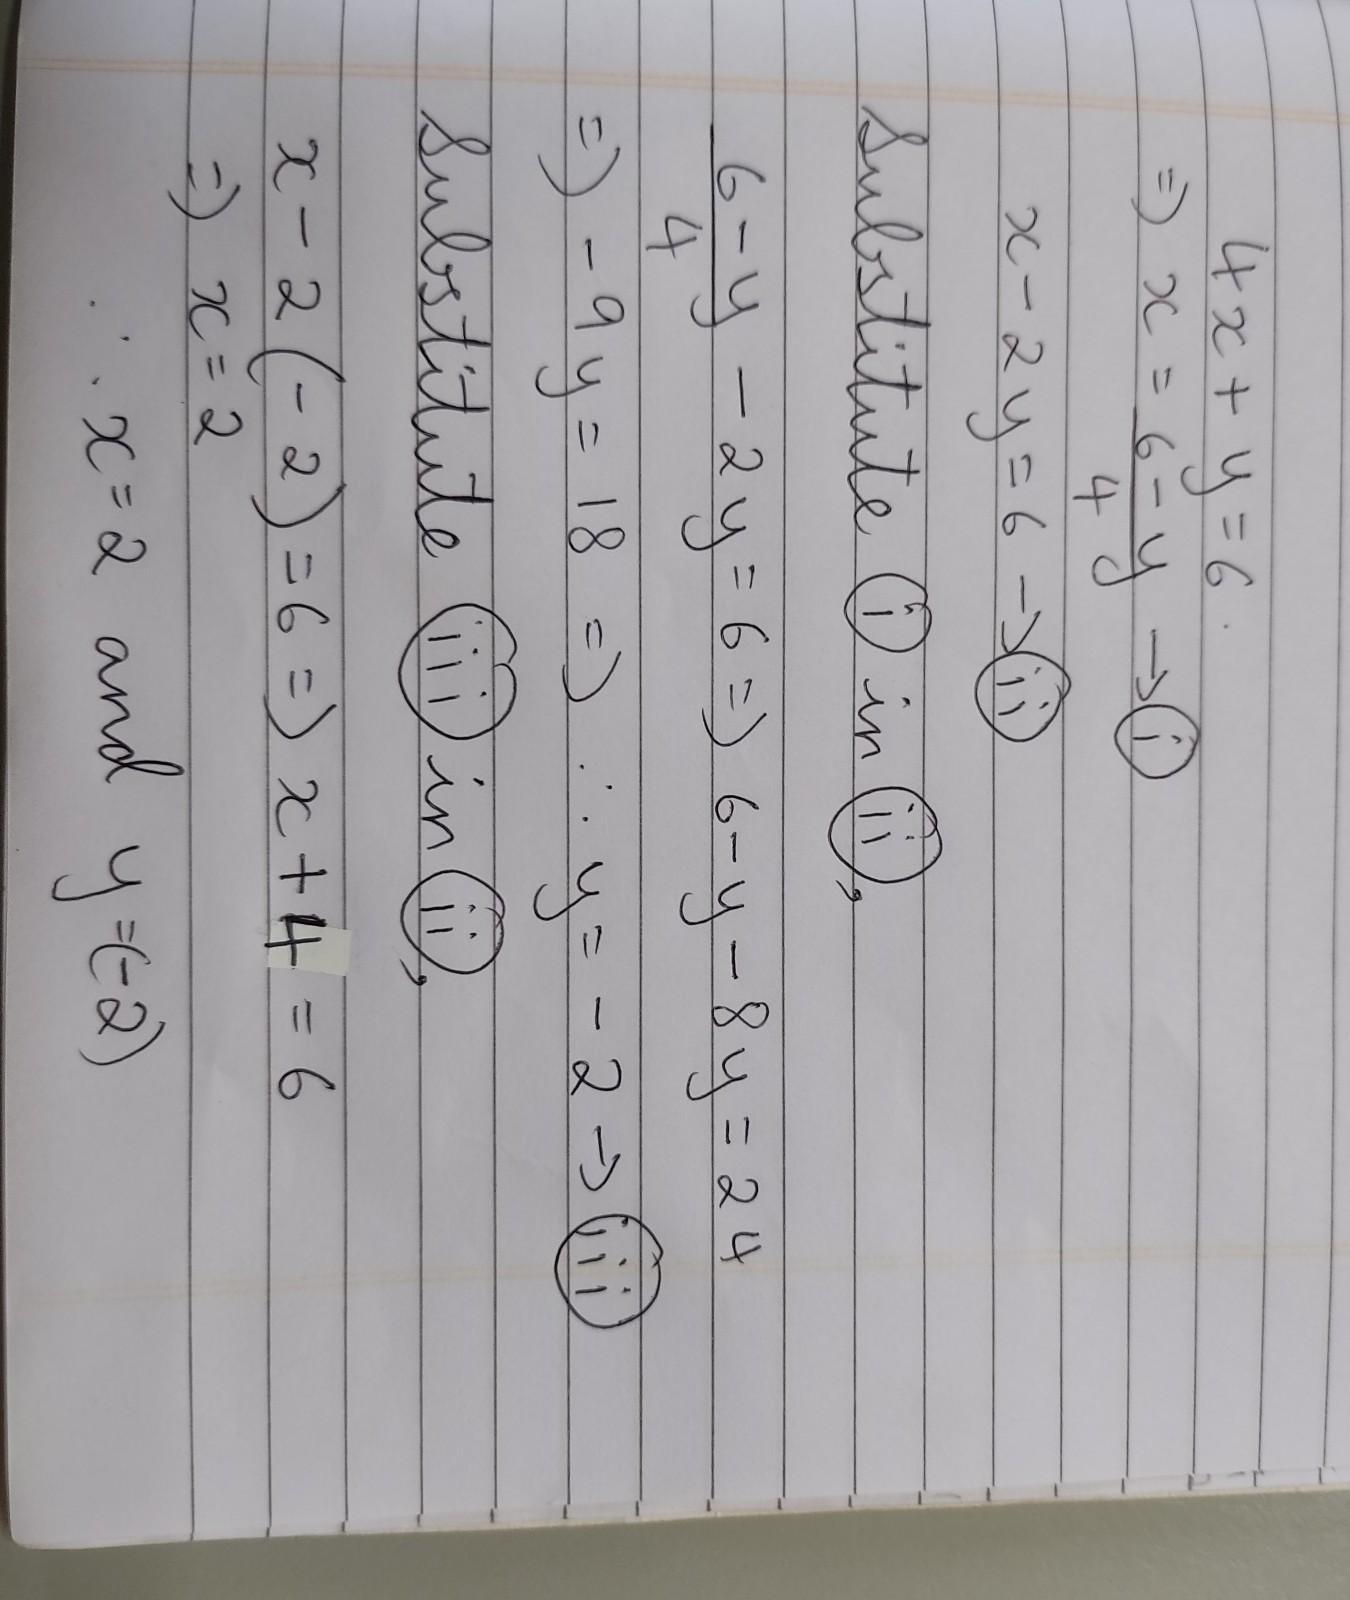 4x + y = 6.
=) x = 6 - y / 4 → (i)
x - 2y = 6 → (ii)
Substitute (i) in (ii),
6 - y / 4 - 2y = 6 =) 6 - y - 8y = 24
=) - 9y = 18 =) ∴ y = - 2 → (iii)
Substitute (iii) in (ii),
x - 2(-2) = 6 =) x + 4 = 6
=) x = 2
∴ x = 2 and y = (-2)